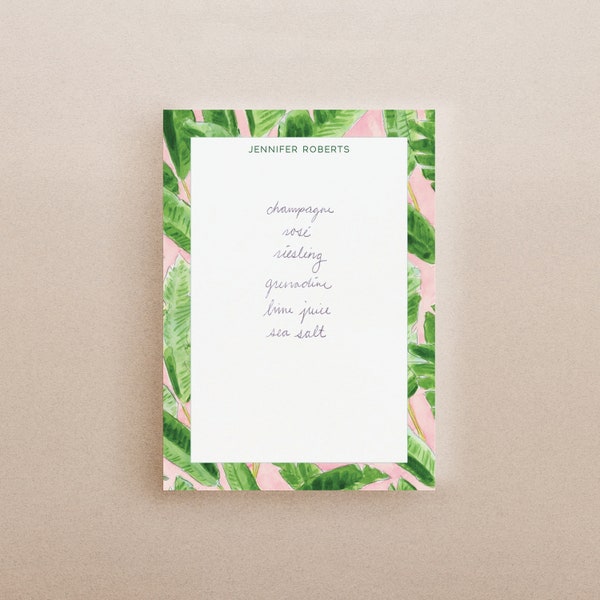 JENNIFER ROBERTS
champagne
rosé
riesling
grenadine
lime juice
sea salt